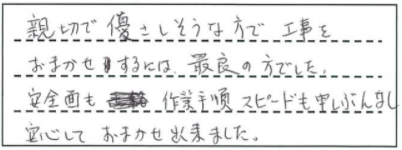 親切で優さしそうな方で工事を
おまかせするには、最良の方でした。
安全面も 作業手順 スピードも申しぶんなし
安心しておまかせ出来ました。